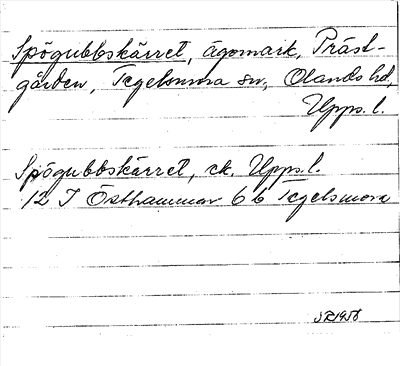 Spögubbskärret, ägomark, Präst-
gården, Tegelsmora sn, Olands hd,
Upps. l.
Spögubbskärret, ek. Upps. l.
12 I Östhammar 6 b Tegelsmora
SR1958